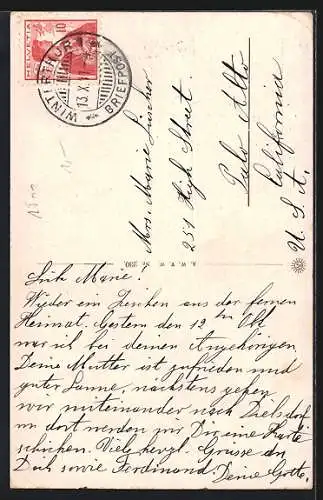 HELVETIA
10
WINTERTHUR
BRIEFPOST
13.X.
Mrs. Marie Lüscher
251 High Street.
Palo Alto
California
U. S. A.
Lieb Marie.
Wieder ein Zeichen aus der fernen
Heimat. Gestern den 12ten Okt
war ich bei deinen Angehörigen
Deine Mutter ist zufrieden und
guter Laune, nächstens gehen
wir miteinander nach Dielsdorf
un dort werden wir Dir eine Karte
schicken. Viele herzl. Grüsse an
Dich sowie Ferdinand. Deine Gotte.